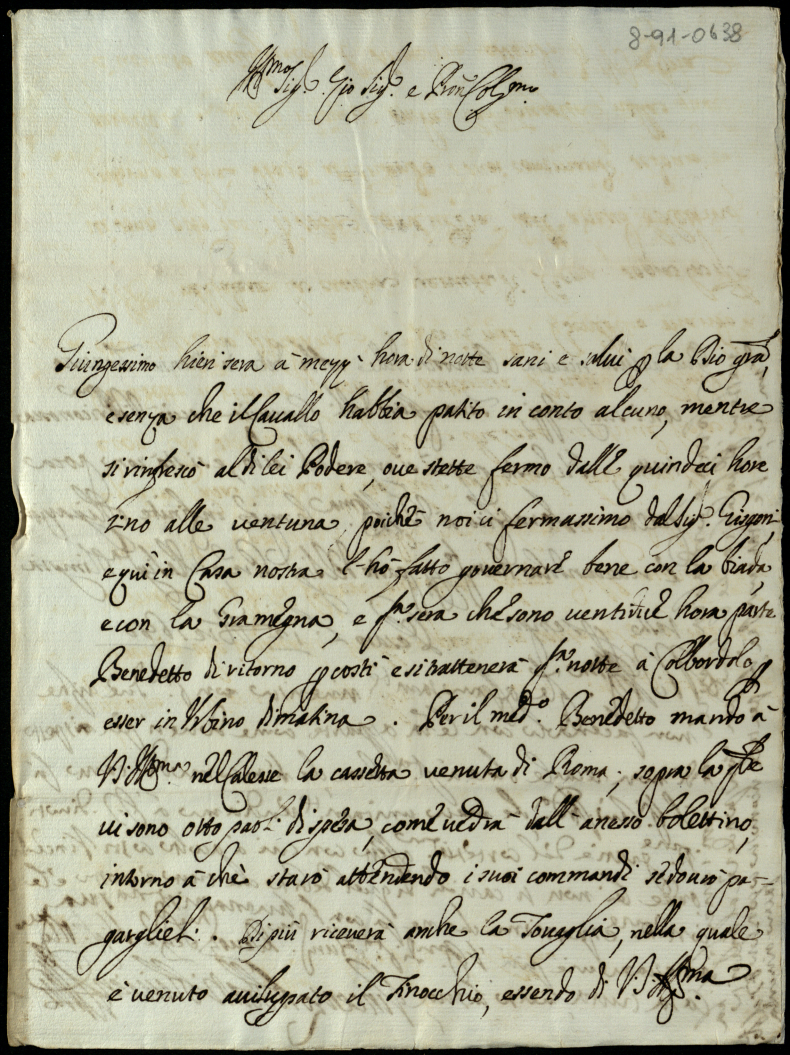 8-91-0638
Ill.mo Sig.r Sig.r e Pron Col.mo
Giungessimo hieri sera à mezz' hora di notte sani e salui p la Dio gra,
e senza che il Cauallo habbia patito in conto alcuno, mentre
si rinfrescò al di lei Podere, oue stette fermo dalle quindeci hore
sino alle ventuna, poiche noi ci fermassimo dal Sig.r
e quì in Casa nostra l'hò fatto gouernare bene con la biada,
e con la Gramegna, e q.ta sera che sono ventidue hora parte
Benedetto di ritorno p costì e si trattenerà q.ta notte à Colbordolo p
esser in Vrbino dimatina. Per il med.o Benedetto mando à
V.S. Ill.ma nel Calesse la cassetta venuta di Roma, sopra la q.le
ui sono otto paoli di spesa, come uedrà dall'anesso bolettino,
intorno à che starò attendendo i suoi commandi se dourò pa-
garglieli. Di più riceuerà anche la Touaglia, nella quale
è uenuto auiluppato il Finocchio, essendo di V.S. Ill.ma.